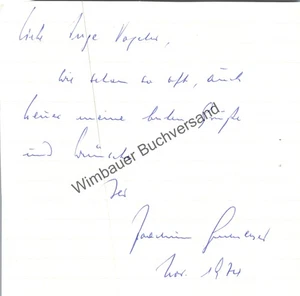 Liebe Inge Vogeler,
wie schon so oft, auch
heute meine besten Grüße
und Wünsche
Ihr
Joachim
Nov. 1974
Wimbauer Buchversand